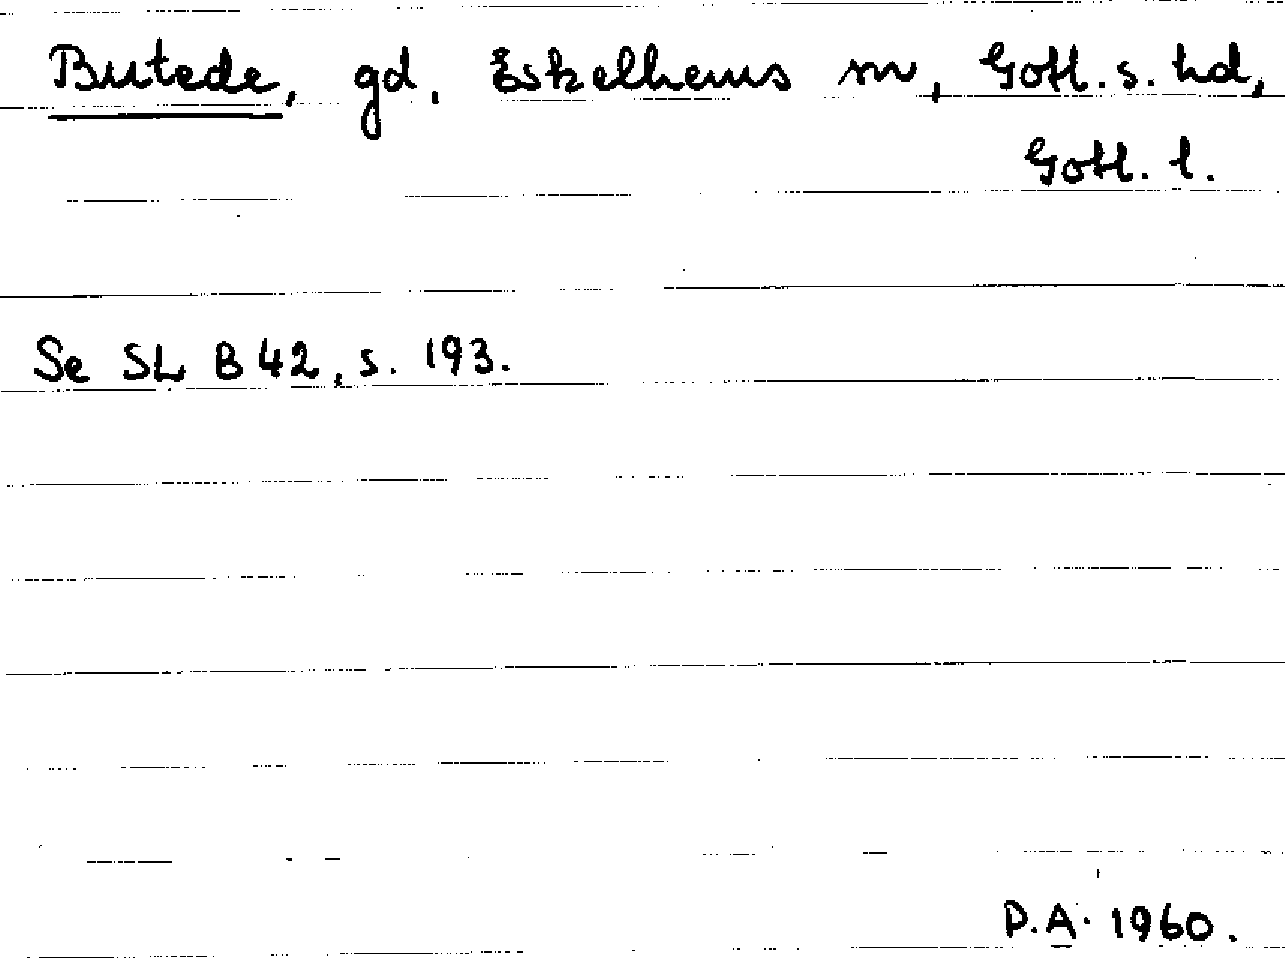 Butede, gd, Eskelhems sn, Gotl. s. hd,
Gotl. l.
Se SL B 42, s. 193.
P.A. 1960.